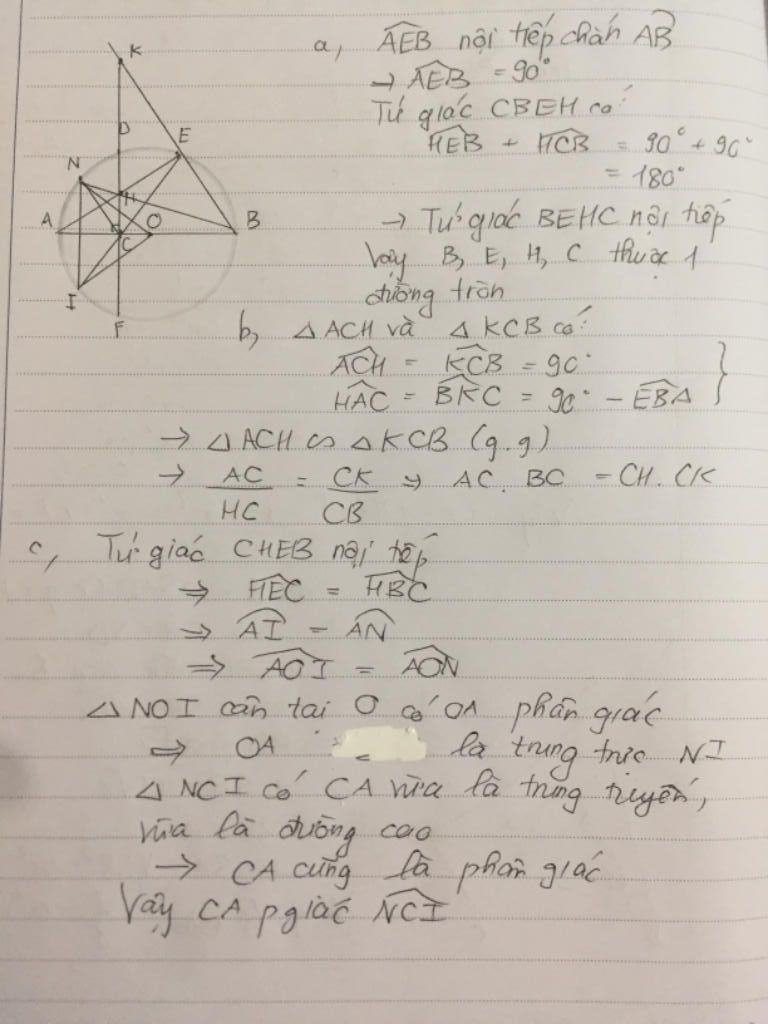 a, AEB nội tiếp chắn AB
→ AEB = 90°
Tứ giác CBEH có:
HEB + HCB = 90° + 90°
= 180°
→ Tứ giác BEHC nội tiếp
Vậy B, E, H, C thuộc 1
đường tròn
K
D
E
N
H
A
O
B
C
I
F
b, △ ACH và △ KCB có:
ACH = KCB = 90°
HAC = BKC = 90° - EBA }
→ △ ACH ∽ △ KCB (g.g)
→ AC/HC = CK/CB ⇒ AC. BC = CH. CK
c, Tứ giác CHEB nội tiếp
⇒ HEC = HBC
⇒ AI = AN
⇒ AOI = AON
△ NOI cân tại O có OA phân giác
⇒ OA là trung trực NI
△ NCI có CA vừa là trung tuyến,
vừa là đường cao
→ CA cũng là phân giác
Vậy CA pgiác NCI